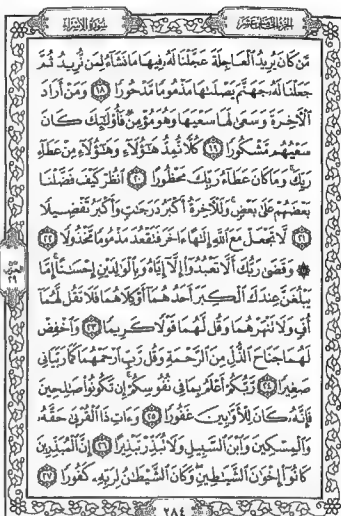 الجزء الخامس عشر
سورة الإسراء
مَّن كَانَ يُرِيدُ ٱلْعَاجِلَةَ عَجَّلْنَا لَهُۥ فِيهَا مَا نَشَآءُ لِمَن نُّرِيدُ ثُمَّ
جَعَلْنَا لَهُۥ جَهَنَّمَ يَصْلَىٰهَا مَذْمُومًا مَّدْحُورًا ١٨ وَمَنْ أَرَادَ
ٱلْأَخِرَةَ وَسَعَىٰ لَهَا سَعْيَهَا وَهُوَ مُؤْمِنٌ فَأُو۟لَٰٓئِكَ كَانَ
سَعْيُهُم مَّشْكُورًا ١٩ كُلًّا نُّمِدُّ هَٰٓؤُلَآءِ وَهَٰٓؤُلَآءِ مِنْ عَطَآءِ
رَبِّكَ وَمَا كَانَ عَطَآءُ رَبِّكَ مَحْظُورًا ٢٠ ٱنظُرْ كَيْفَ فَضَّلْنَا
بَعْضَهُمْ عَلَىٰ بَعْضٍ وَلَلْأَخِرَةُ أَكْبَرُ دَرَجَٰتٍ وَأَكْبَرُ تَفْضِيلًا
٢١ لَّا تَجْعَلْ مَعَ ٱللَّهِ إِلَٰهًا ءَاخَرَ فَتَقْعُدَ مَذْمُومًا مَّخْذُولًا ٢٢
۞ وَقَضَىٰ رَبُّكَ أَلَّا تَعْبُدُوٓا۟ إِلَّآ إِيَّاهُ وَبِٱلْوَٰلِدَيْنِ إِحْسَٰنًا إِمَّا
يَبْلُغَنَّ عِندَكَ ٱلْكِبَرَ أَحَدُهُمَآ أَوْ كِلَاهُمَا فَلَا تَقُل لَّهُمَآ
أُفٍّ وَلَا نَنْهَرْهُمَا وَقُل لَّهُمَا قَوْلًا كَرِيمًا ٢٣ وَٱخْفِضْ
لَهُمَا جَنَاحَ ٱلذُّلِّ مِنَ ٱلرَّحْمَةِ وَقُل رَّبِّ ٱرْحَمْهُمَا كَمَا رَبَّيَانِى
صَغِيرًا ٢٤ رَّبُّكُمْ أَعْلَمُ بِمَا فِى نُفُوسِكُمْ إِن تَكُونُوا۟ صَٰلِحِينَ
فَإِنَّهُۥ كَانَ لِلْأَوَّٰبِينَ غَفُورًا ٢٥ وَءَاتِ ذَا ٱلْقُرْبَىٰ حَقَّهُۥ
وَٱلْمِسْكِينَ وَٱبْنَ ٱلسَّبِيلِ وَلَا تُبَذِّرْ تَبْذِيرًا ٢٦ إِنَّ ٱلْمُبَذِّرِينَ
كَانُوٓا۟ إِخْوَٰنَ ٱلشَّيَٰطِينِ وَكَانَ ٱلشَّيْطَٰنُ لِرَبِّهِۦ كَفُورًا ٢٧
٢٨٤